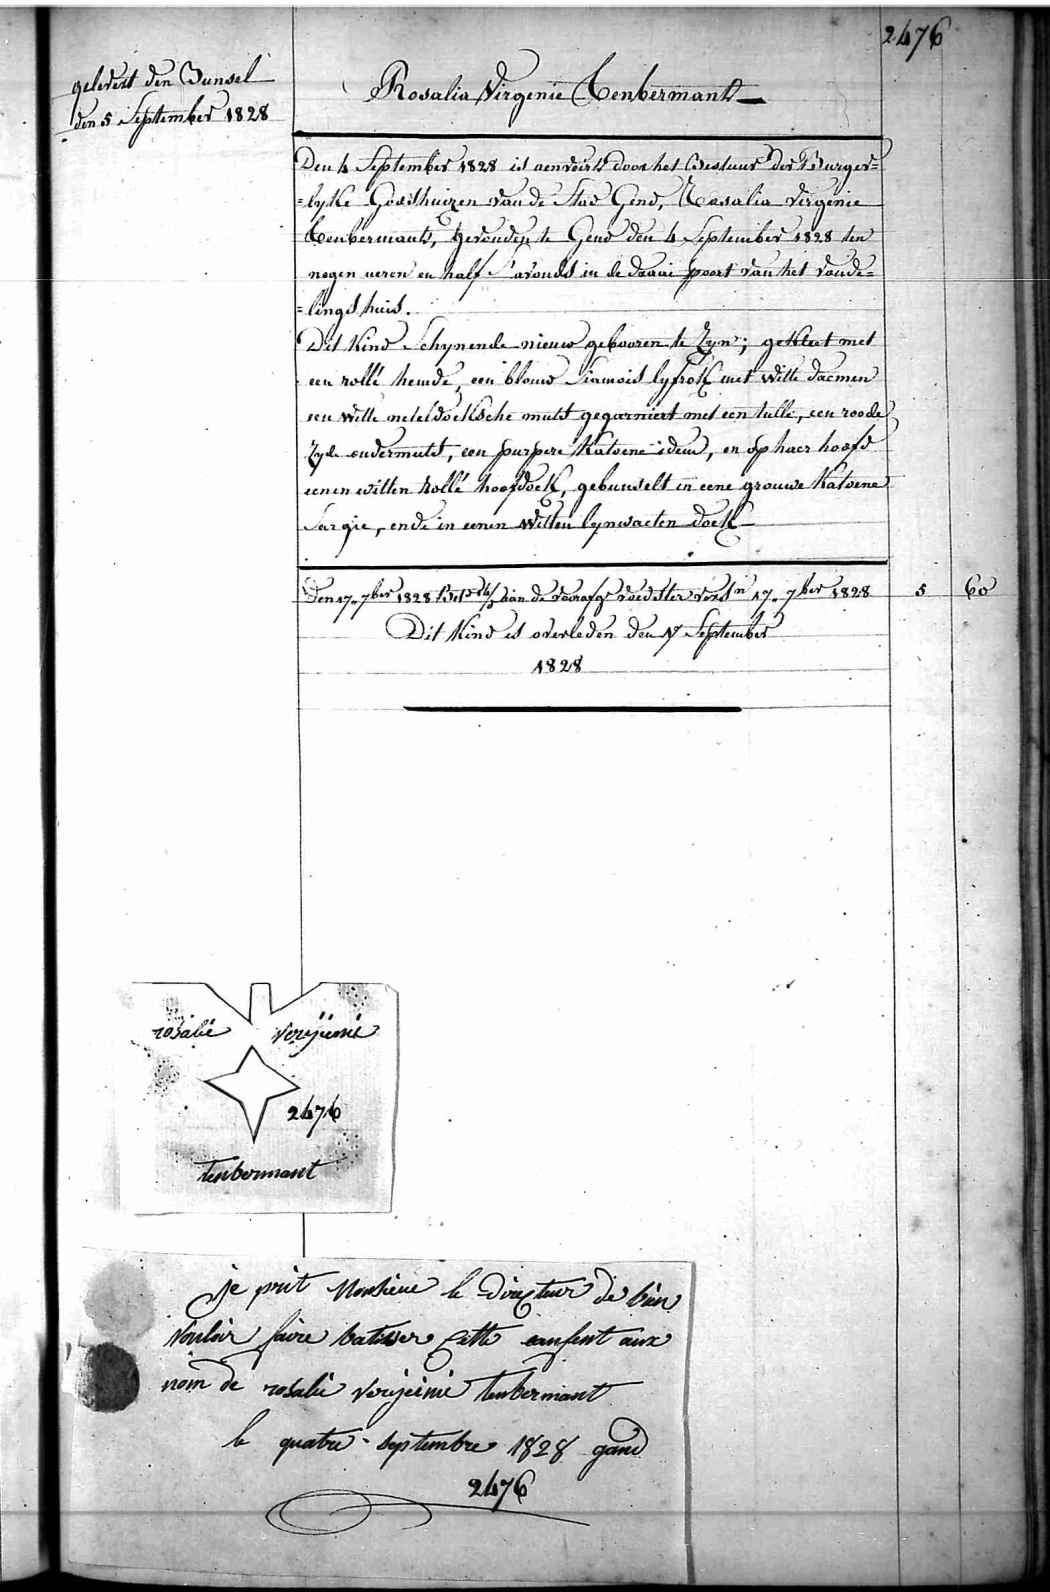 2476
gelevert den Bunsel
den 5 September 1828
Rosalia Virgenie Tenbermant
Den 4 September 1828 is aenveirt door het Bestuur der Burger=
=lyke Godshuizen van de Stad Gend, Rosalia Virgenie
Tenbermant, gevonden te Gend den 4 September 1828 ten
negen ueren en half S'avonds in de draai poort van het vonde=
=lings huis.
Dit Kind Schynende nieuw gebooren te Zyn; gekleet met
een rollé hemde, een blauw Siamois lyfrok met witte
een witte neteldoeksche muts gegarniert met een tulle, een roode
Zyde ondermuts, een purpere Katoene idem, en op haer hoofd
eenen witten rollé hoofdoek, gebunselt in eene grouwe Katoene
Sargie, ende in eenen Witten lynwaeten doek
Den 17 7ber 1828 aan de voedster 17 7ber 1828 5 60
Dit Kind is overleden den 17 September
1828
rosalie verejienie
2476
tenbermant
je prit Monsieur le directeur de bien
vouloir faire batisser cette enfent aux
nom de rosalie verejeinie tenbermant
le quatre septembre 1828 gand
2476